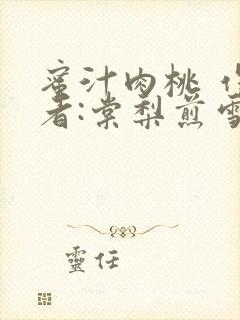 蜜汁肉桃 作
者:棠梨煎雪
靈任